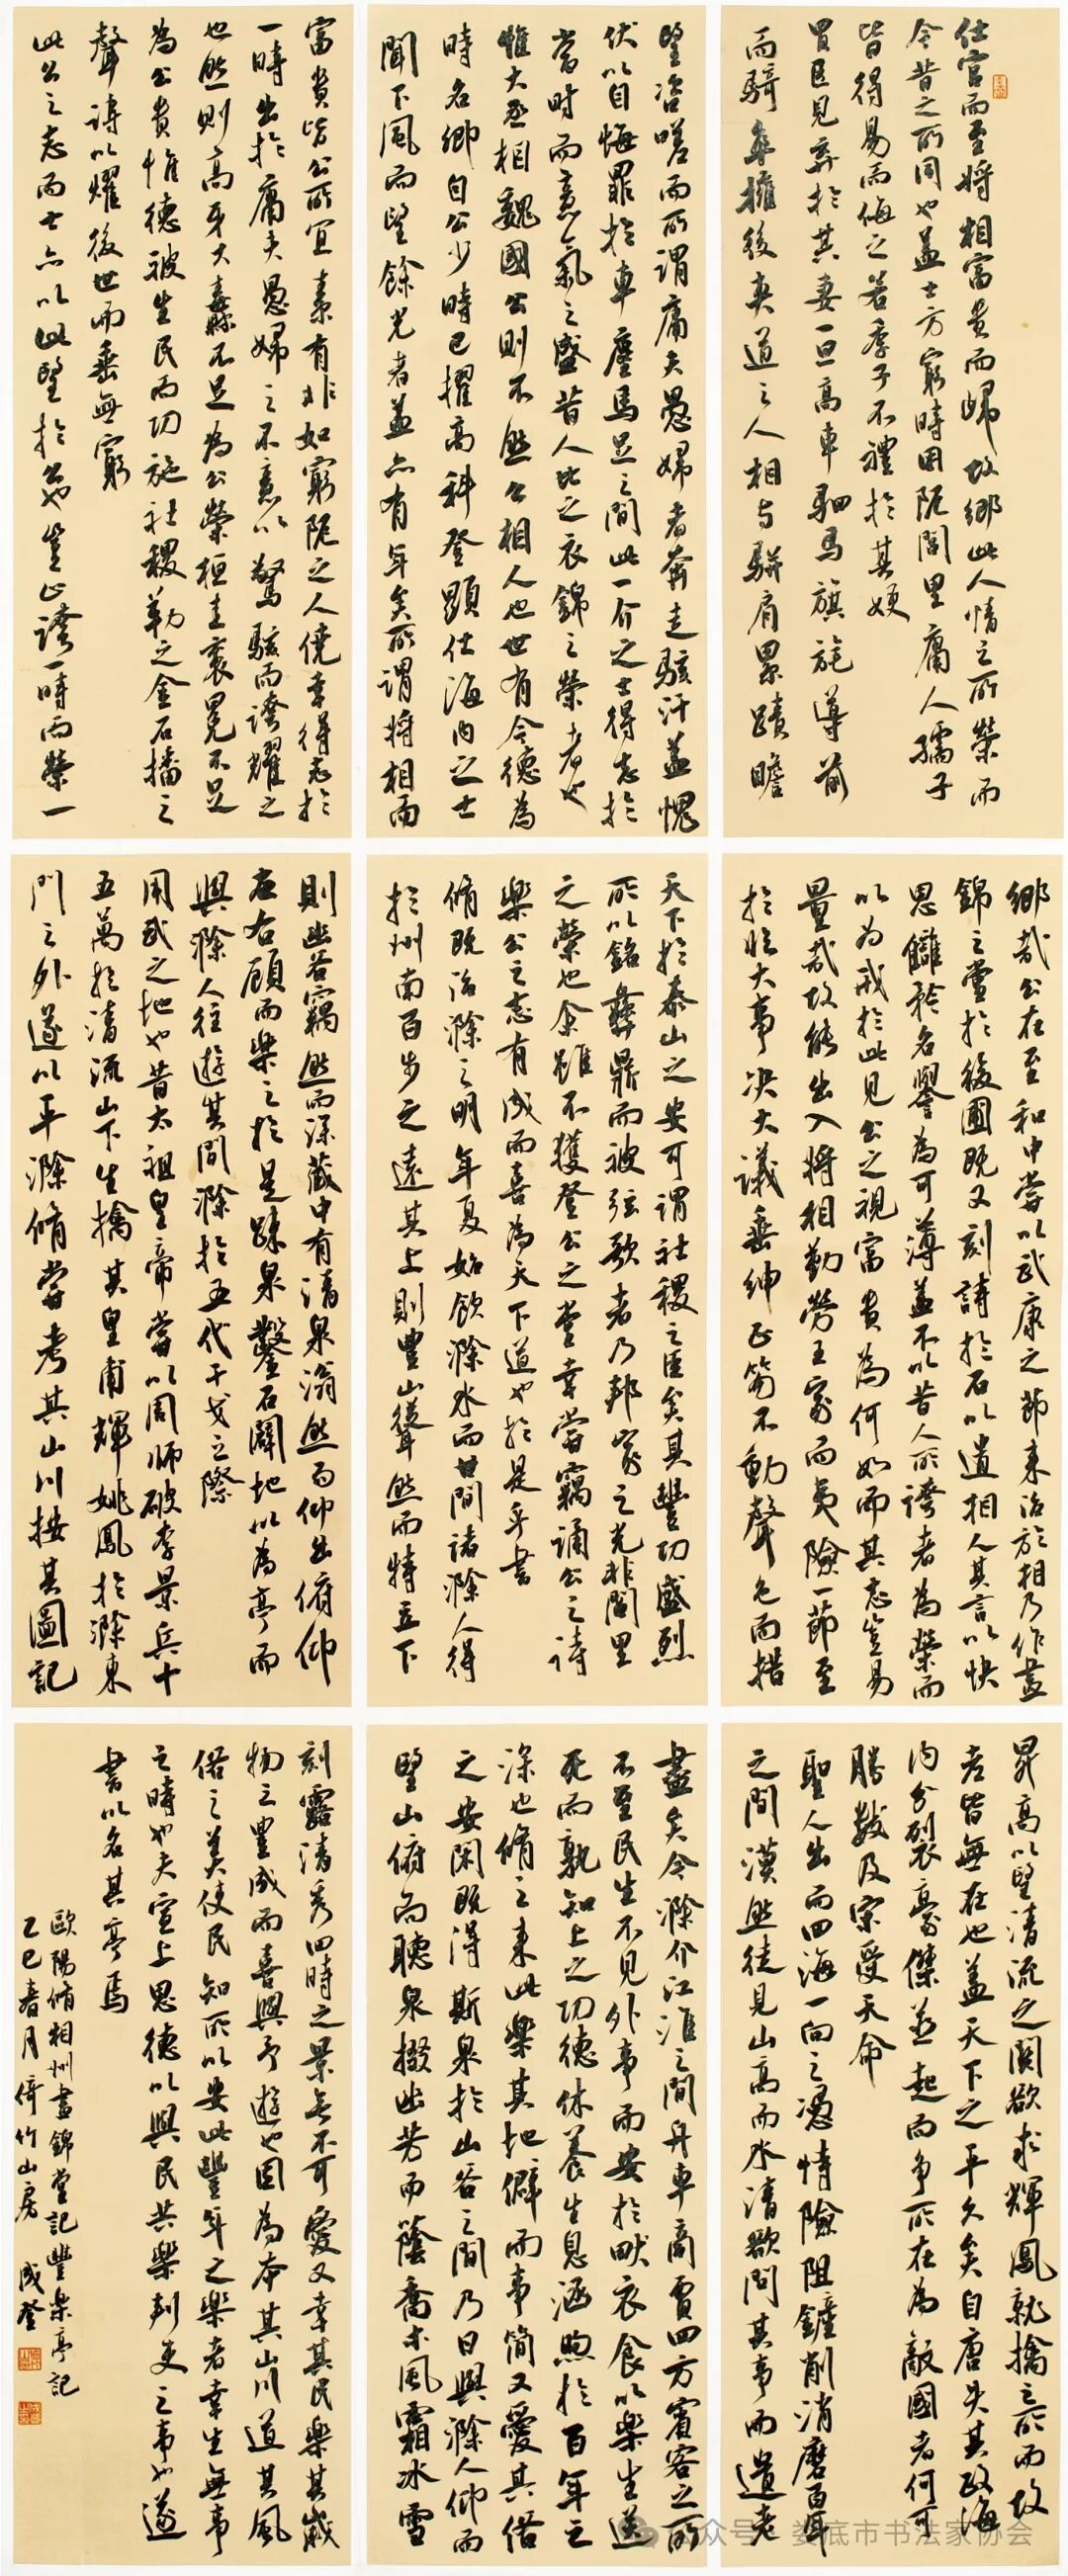 仕宦而至將相富貴而歸故鄉此人情之所榮而
今昔之所同也蓋士方窮時困阨閭里庸人孺子
皆得易而侮之若季子不禮於其嫂
買臣見棄於其妻一旦高車駟馬旗旄導前
而騎卒擁後夾道之人相與駢肩累蹟瞻
望咨嗟而所謂庸夫愚婦者奔走駭汗羞愧
伏以自悔罪於車塵馬足之間此一介之士得志於
當時而意氣之盛昔人比之衣錦之榮者也
惟大丞相魏國公則不然公相人也世有令德為
時名卿自公少時已擢高科登顯仕海內之士
聞下風而望餘光者蓋亦有年矣所謂將相而
富貴皆公所宜素有非如窮阨之人僥幸得志於
一時出於庸夫愚婦之不意以驚駭而誇耀之
也然則高牙大纛不足為公榮桓圭袞冕不足
為公貴惟德被生民而功施社稷勒之金石播之
聲詩以耀後世而垂無窮
此公之志而士亦以此望於公也豈止誇一時而榮一
鄉哉公在至和中嘗以武康之節來治於相乃作晝
錦之堂於後圃既又刻詩於石以遺相人其言以快
恩讎矜名譽為可薄蓋不以昔人所誇者為榮而
以為戒於此見公之視富貴為何如而其志豈易
量哉故能出入將相勤勞王家而夷險一節至
於臨大事決大議垂紳正笏不動聲色而措
天下於泰山之安可謂社稷之臣矣其豐功盛烈
所以銘彝鼎而被弦歌者乃邦家之光非閭里
之榮也余雖不獲登公之堂幸嘗竊誦公之詩
樂公之志有成而喜為天下道也於是乎書
脩既治滁之明年夏始飲滁水而甘問諸滁人得
於州南百步之遠其上則豐山聳然而特立下
則幽谷窈然而深藏中有清泉滃然而仰出俯仰
左右顧而樂之於是疏泉鑿石闢地以為亭而
與滁人往遊其間滁於五代干戈之際
用武之地也昔太祖皇帝嘗以周師破李景兵十
五萬於清流山下生擒其皇甫暉姚鳳於滁東
門之外遂以平滁脩嘗考其山川按其圖記
昇高以望清流之關欲求暉鳳就擒之所而故
老皆無在也蓋天下之平久矣自唐失其政海
內分裂豪傑並起而爭所在為敵國者何可
勝數及宋受天命
聖人出而四海一向之憑恃險阻鏟削消磨百年
之間漠然徒見山高而水清欲問其事而遺老
盡矣今滁介江淮之間舟車商賈四方賓客之所
不至民生不見外事而安於畎衣食以樂生送
死而孰知上之功德休養生息涵煦於百年之
深也脩之來此樂其地僻而事簡又愛其俗
之安閑既得斯泉於山谷之間乃日與滁人仰而
望山俯而聽泉掇幽芳而蔭喬木風霜冰雪
刻露清秀四時之景無不可愛又幸其民樂其歲
物之豐成而喜與予遊也因為本其山川道其風
俗之美使民知所以安此豐年之樂者幸生無事
之時也夫宣上恩德以與民共樂刺史之事也遂
書以名其亭焉
歐陽脩相州晝錦堂記豐樂亭記
乙巳春月倚竹山房 成登
公众号 娄底市书法家协会